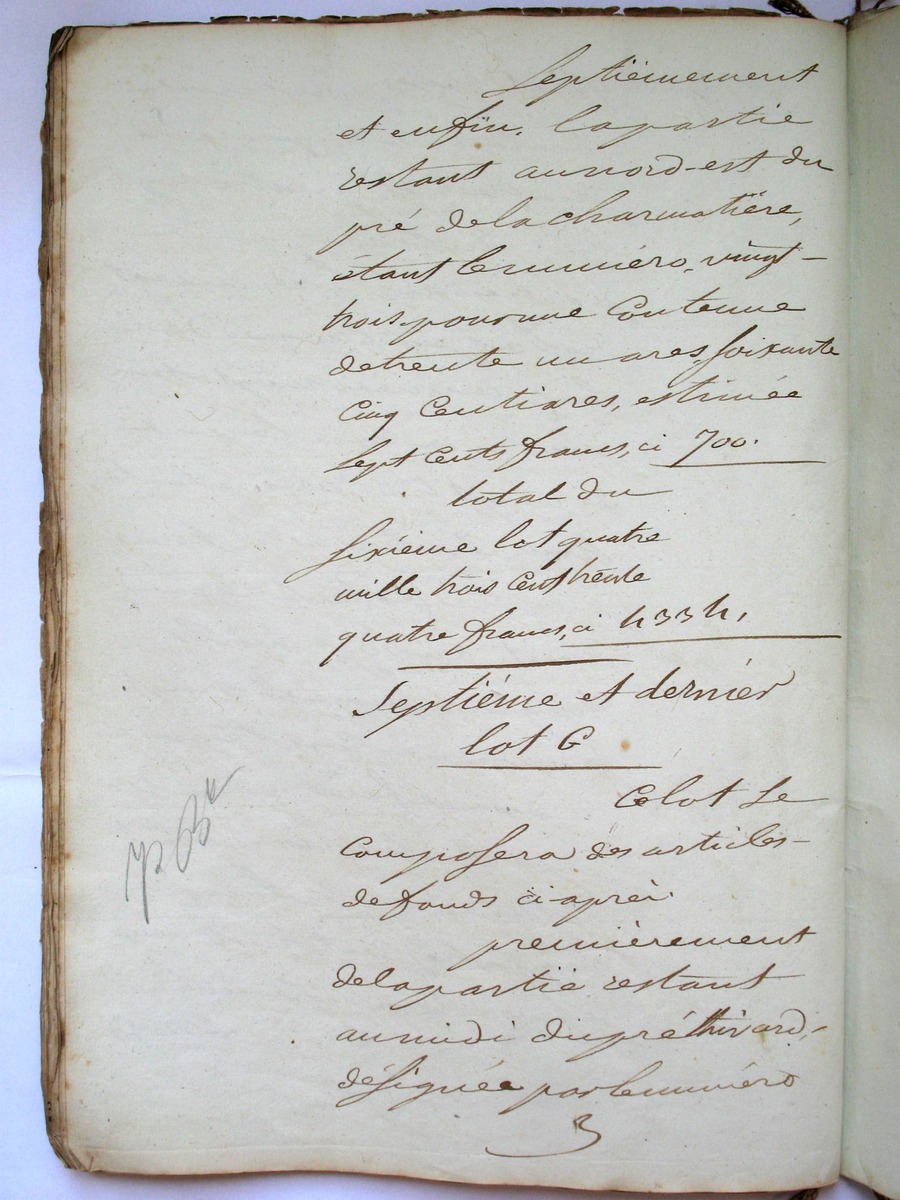 Septièmement
et enfin, la partie
restant au nord-est du
pré de la charmatière,
étant le numéro, vingt-
trois pour une Contenue
de trente un ares, soixante
Cinq Centiares, estimée
Sept Cents francs, ci 700.
total du
sixième lot quatre
mille trois Cent trente
quatre francs, ci 4334,
Septième et dernier
lot G
Ce lot se
Composera des articles-
de fonds ci-après.
premièrement
de la partie restant
au midi du pré thivard,
désignée par le numéro